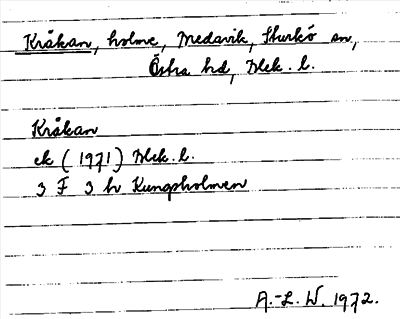 Kråkan, holme, Medavik, Sturkö sn,
Östra hd, Blek. l.
Kråkan
ek (1971) Blek. l.
3 F 3 h Kungsholmen
A.-L. W. 1972.